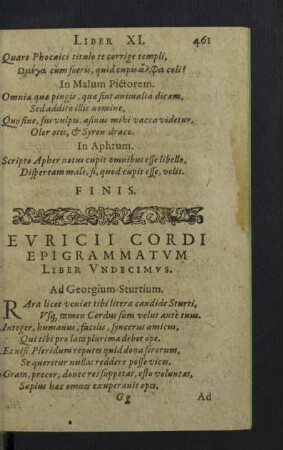 LIBER XI. 461
Quare Phocaici titulo te corrige templi,
Ωμέγα cùm fueris, quid cupis ἄλφα coli?
In Malum Pictorem.
Omnia quæ pingis, quasi sint animalia dicam,
Sed addito illis nomine,
Quo sine, sus vulpes, asinus mihi vacca videtur,
Olor otis, & Syren draco.
In Aphrum.
Scripto Apher notus cupit omnibus esse libello,
Dispeream male, si, quod cupit esse, velit.
FINIS.
EVRICII CORDI
EPIGRAMMATVM
LIBER VNDECIMVS.
Ad Georgium Sturtium.
RAra licet veniat tibi litera candide Sturti,
Vsq; tamen Cordus sum velut antè tuus.
Integer, humanus, facilis, syncerus amicus,
Qui tibi pro lata plurima debet ope.
Et nisi Pieridum reputes quid dona sororum,
Se queritur nullas reddere posse vices.
Grata, precor, donec res suppetat, esto voluntas,
Sæpius hæc omnes exuperauit opes.
Gg Ad